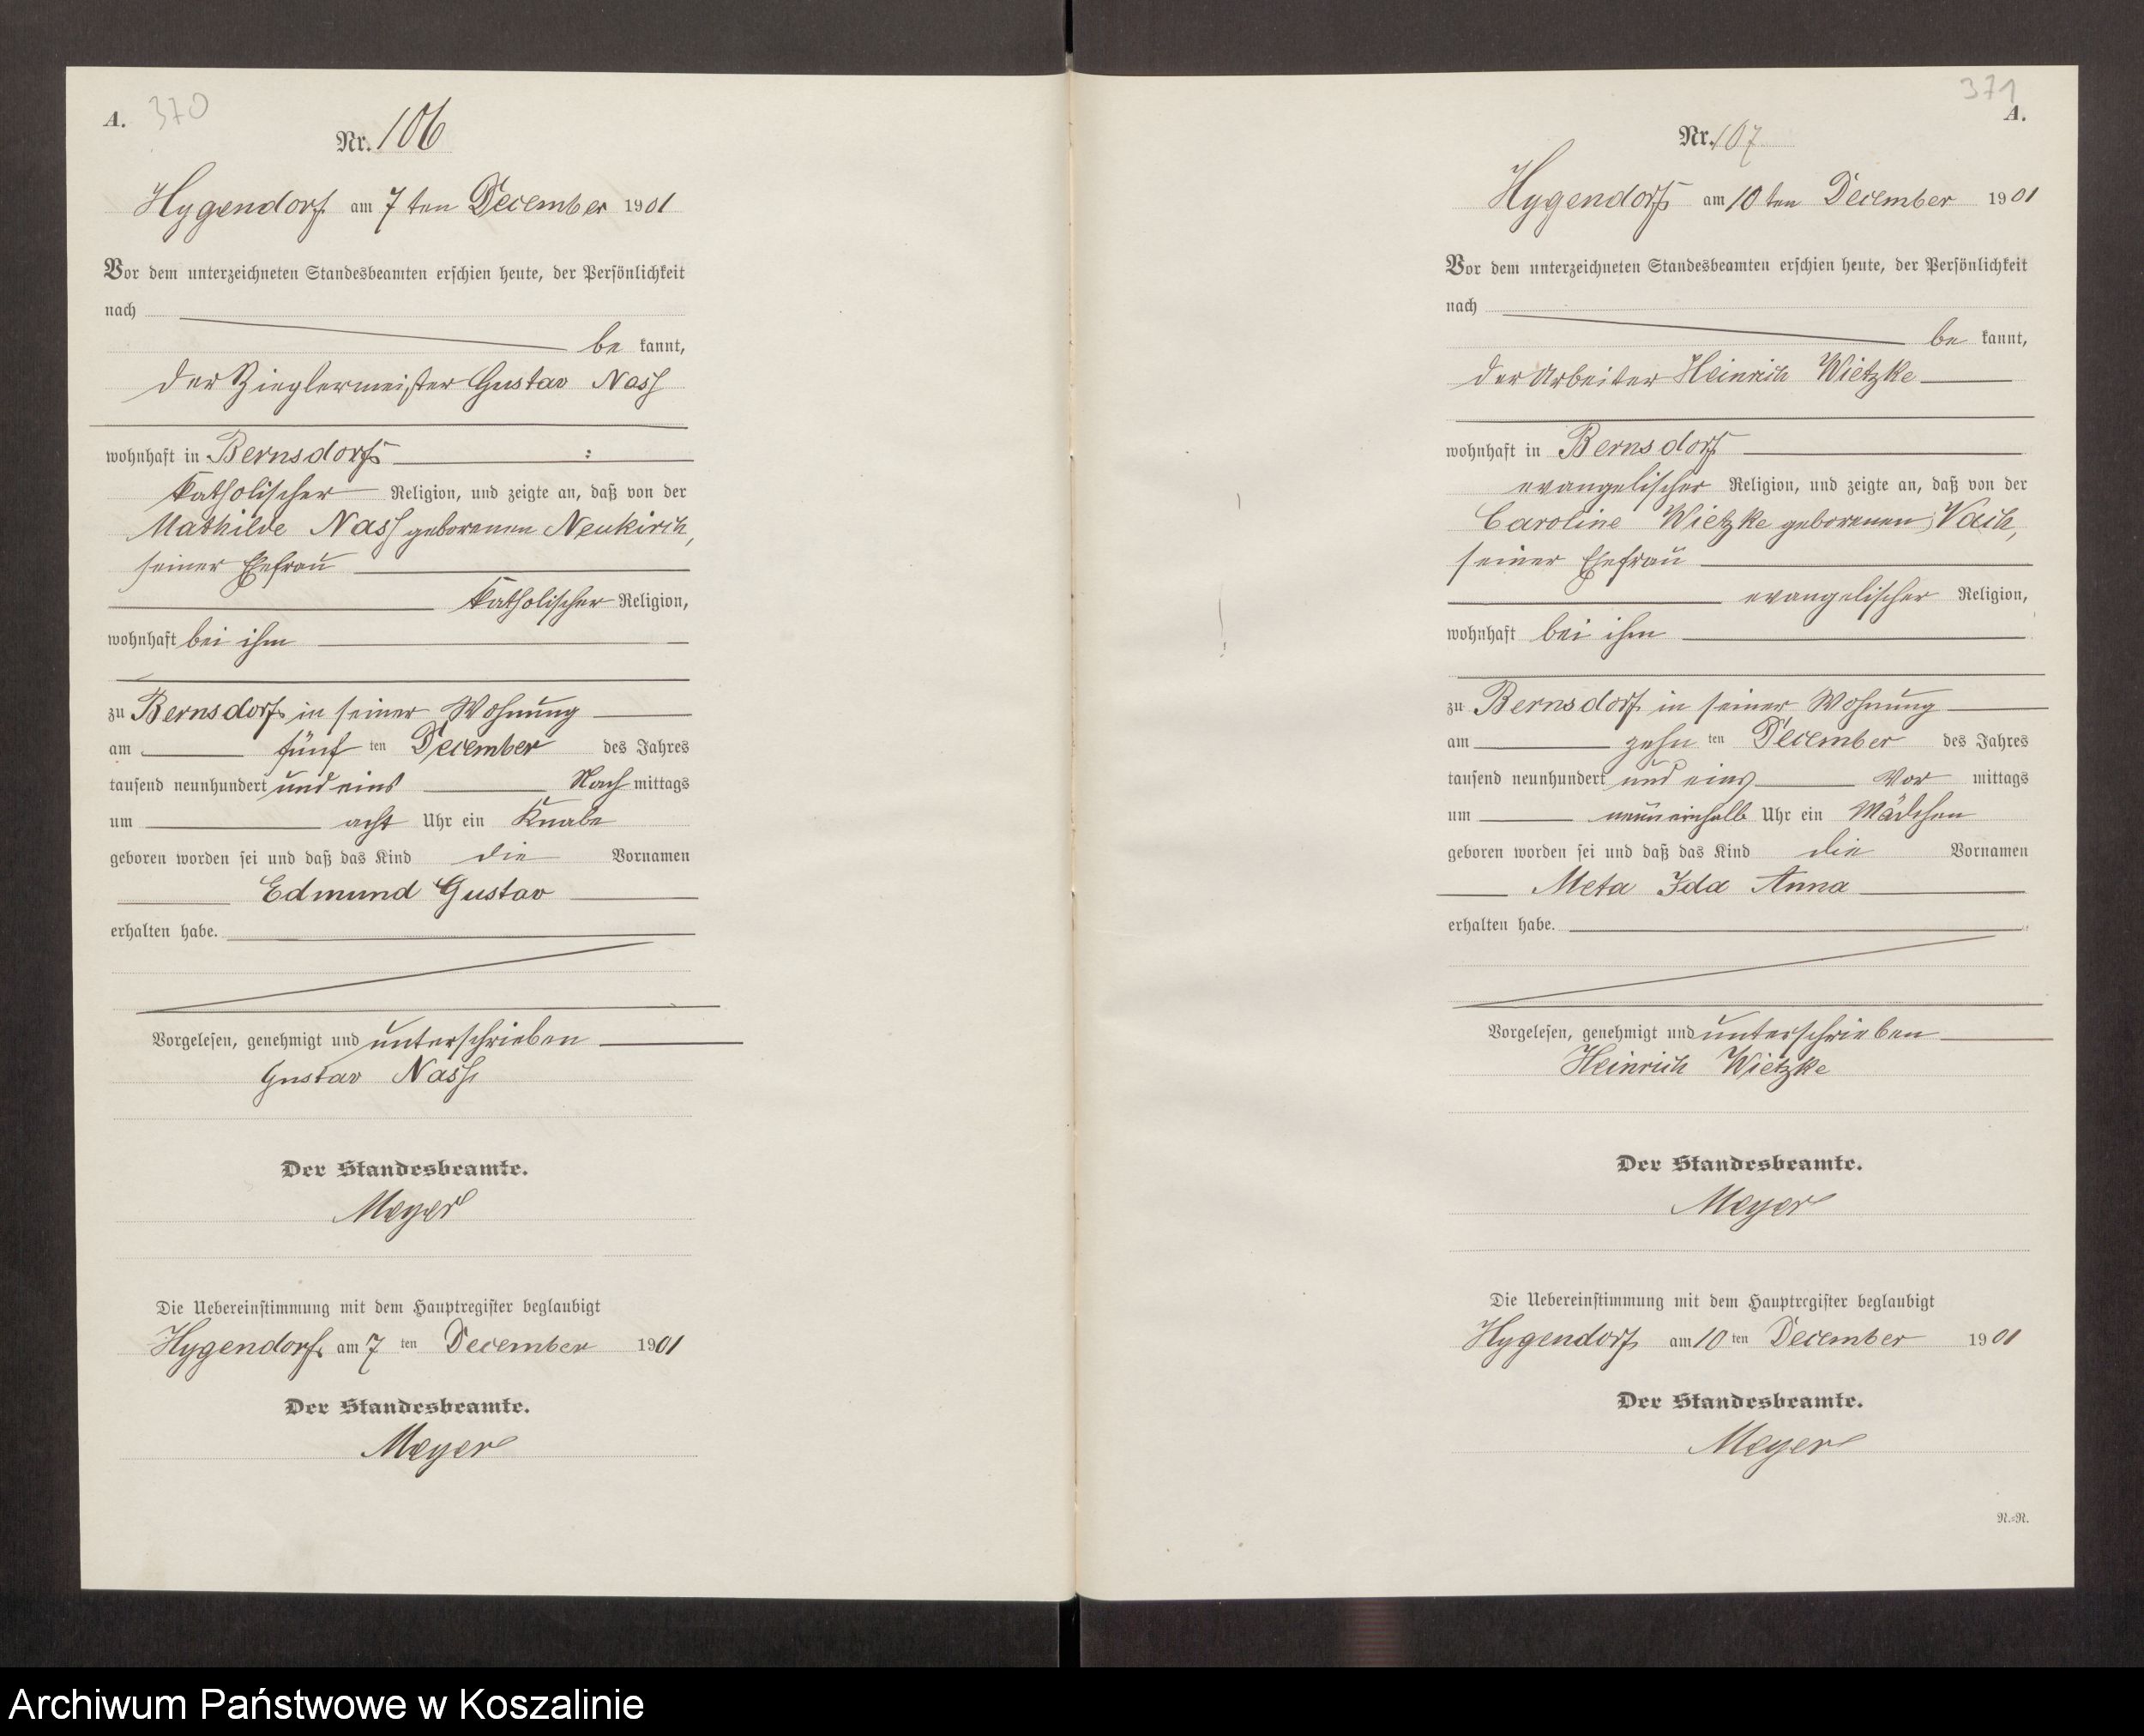 A. 370
Nr. 106
Hygendorf am 7ten December 1901
Vor dem unterzeichneten Standesbeamten erschien heute, der Persönlichkeit
nach
be kannt,
der Zieglermeister Gustav Nass
wohnhaft in Bernsdorf :
katholischer Religion, und zeigte an, daß von der
Mathilde Nass geborenen Neukirch,
seiner Ehefrau
katholischer Religion,
wohnhaft bei ihm
zu Bernsdorf in seiner Wohnung
am fünf ten December des Jahres
tausend neunhundert und eins Nach mittags
um acht Uhr ein Knabe
geboren worden sei und daß das Kind die Vornamen
Edmund Gustav
erhalten habe.
Vorgelesen, genehmigt und unterschrieben
Gustav Nass
Der Standesbeamte.
Meyer
Die Uebereinstimmung mit dem Hauptregister beglaubigt
Hygendorf am 7 ten December 1901
Der Standesbeamte.
Meyer
371
A.
Nr. 107
Hygendorf am 10ten December 1901
Vor dem unterzeichneten Standesbeamten erschien heute, der Persönlichkeit
nach
be kannt,
der Arbeiter Heinrich Wietzke
wohnhaft in Bernsdorf
evangelischer Religion, und zeigte an, daß von der
Caroline Wietzke geborenen
seiner Ehefrau
evangelischer Religion,
wohnhaft bei ihm
zu Bernsdorf in seiner Wohnung
am zehn ten December des Jahres
tausend neunhundert und eins Vor mittags
um neuneinhalb Uhr ein Mädchen
geboren worden sei und daß das Kind die Vornamen
Meta Ida Anna
erhalten habe.
Vorgelesen, genehmigt und unterschrieben
Heinrich Wietzke
Der Standesbeamte.
Meyer
Die Uebereinstimmung mit dem Hauptregister beglaubigt
Hygendorf am 10 ten December 1901
Der Standesbeamte.
Meyer
N.=N.
Archiwum Państwowe w Koszalinie